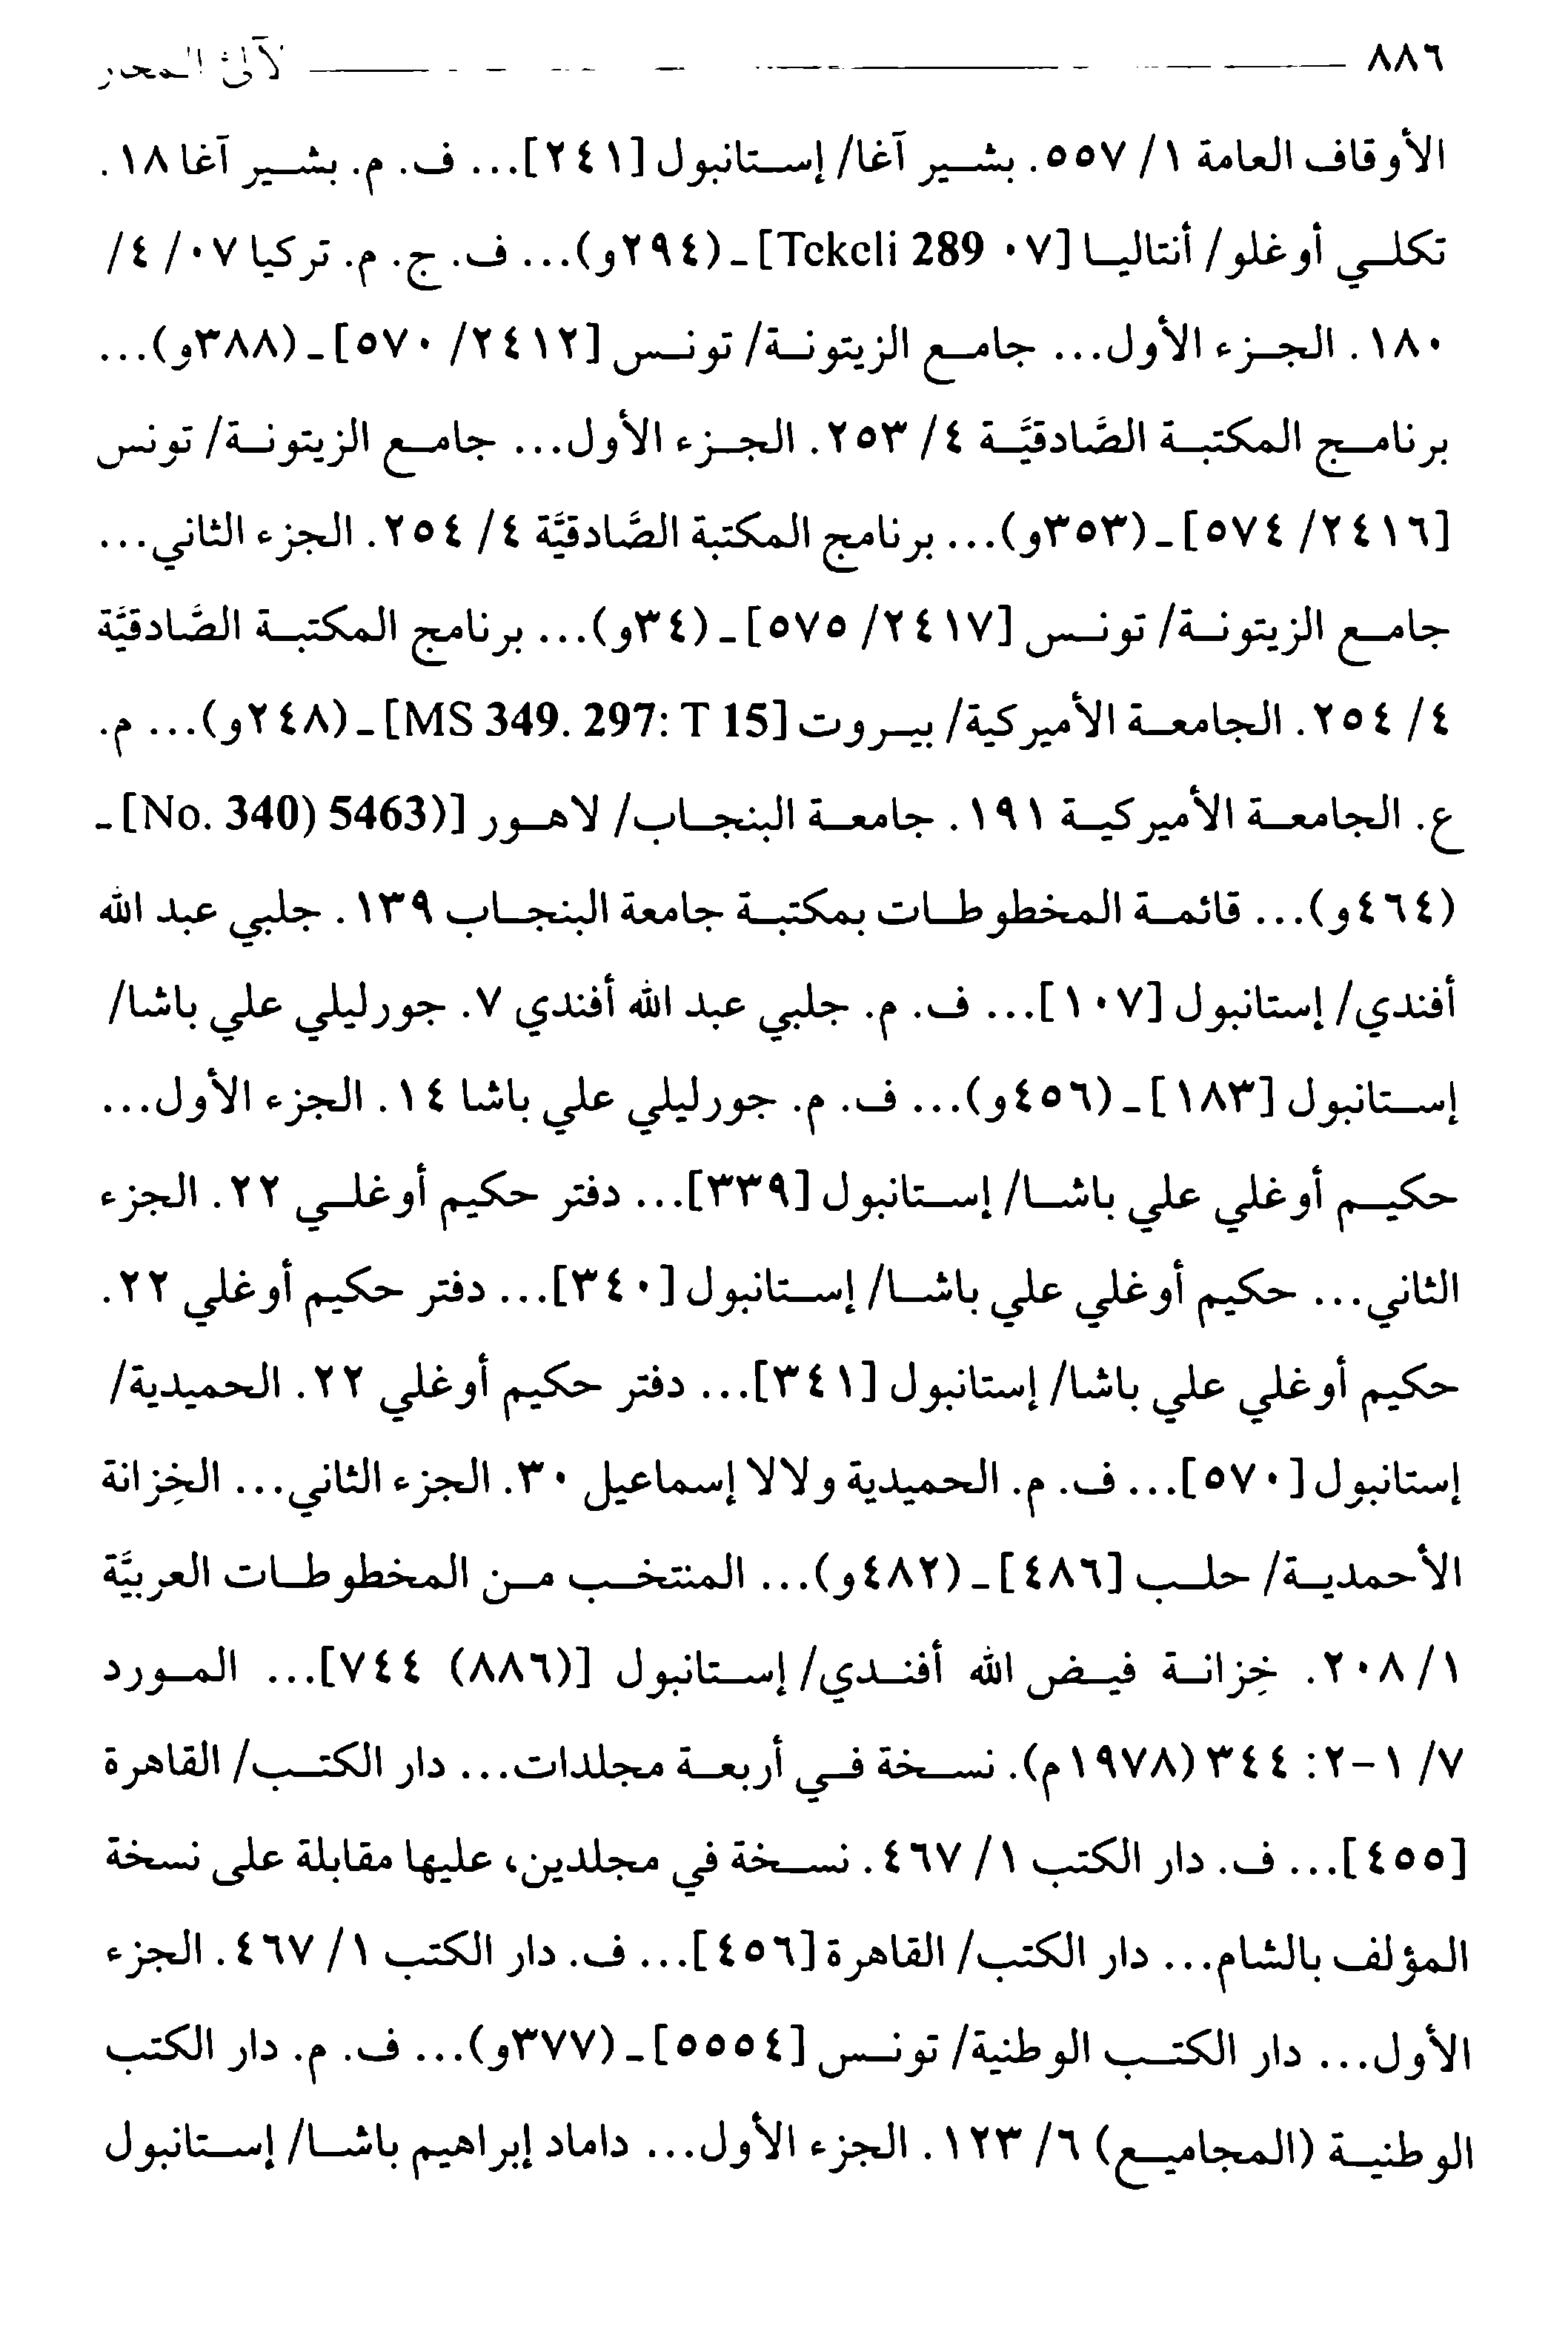 ٨٨٦ لآلئ المحار
الأوقاف العامة ١/ ٥٥٧. بشير آغا/ إستانبول [٢٤١]... ف. م. بشير آغا ١٨.
تكلي أوغلو/ أنتاليا [٠٧ Tekeli 289] ـ (٢٩٤و)... ف. ج. م. تركيا ٠٧/ ٤/
١٨٠. الجزء الأول... جامع الزيتونة/ تونس [٢٤١٢/ ٥٧٠] ـ (٣٨٨و)...
برنامج المكتبة الصَّادقيَّة ٤/ ٢٥٣. الجزء الأول... جامع الزيتونة/ تونس
[٢٤١٦/ ٥٧٤] ـ (٣٥٣و)... برنامج المكتبة الصَّادقيَّة ٤/ ٢٥٤. الجزء الثاني...
جامع الزيتونة/ تونس [٢٤١٧/ ٥٧٥] ـ (٣٤و)... برنامج المكتبة الصَّادقيَّة
٤/ ٢٥٤. الجامعة الأميركية/ بيروت [MS 349. 297: T 15] ـ (٢٤٨و)... م.
ع. الجامعة الأميركية ١٩١. جامعة البنجاب/ لاهور [(No. 340) 5463] ـ
(٤٦٤و)... قائمة المخطوطات بمكتبة جامعة البنجاب ١٣٩. جلبي عبد الله
أفندي/ إستانبول [١٠٧]... ف. م. جلبي عبد الله أفندي ٧. جورليلي علي باشا/
إستانبول [١٨٣] ـ (٤٥٦و)... ف. م. جورليلي علي باشا ١٤. الجزء الأول...
حكيم أوغلي علي باشا/ إستانبول [٣٣٩]... دفتر حكيم أوغلي ٢٢. الجزء
الثاني... حكيم أوغلي علي باشا/ إستانبول [٣٤٠]... دفتر حكيم أوغلي ٢٢.
حكيم أوغلي علي باشا/ إستانبول [٣٤١]... دفتر حكيم أوغلي ٢٢. الحميدية/
إستانبول [٥٧٠]... ف. م. الحميدية ولالا إسماعيل ٣٠. الجزء الثاني... الخِزانة
الأحمدية/ حلب [٤٨٦] ـ (٤٨٢و)... المنتخب من المخطوطات العربيَّة
١/ ٢٠٨. خِزانة فيض الله أفندي/ إستانبول [(٨٨٦) ٧٤٤]... المورد
٧/ ١-٢: ٣٤٤ (١٩٧٨م). نسخة في أربعة مجلدات... دار الكتب/ القاهرة
[٤٥٥]... ف. دار الكتب ١/ ٤٦٧. نسخة في مجلدين، عليها مقابلة على نسخة
المؤلف بالشام... دار الكتب/ القاهرة [٤٥٦]... ف. دار الكتب ١/ ٤٦٧. الجزء
الأول... دار الكتب الوطنية/ تونس [٥٥٥٤] ـ (٣٧٧و)... ف. م. دار الكتب
الوطنية (المجاميع) ٦/ ١٢٣. الجزء الأول... داماد إبراهيم باشا/ إستانبول